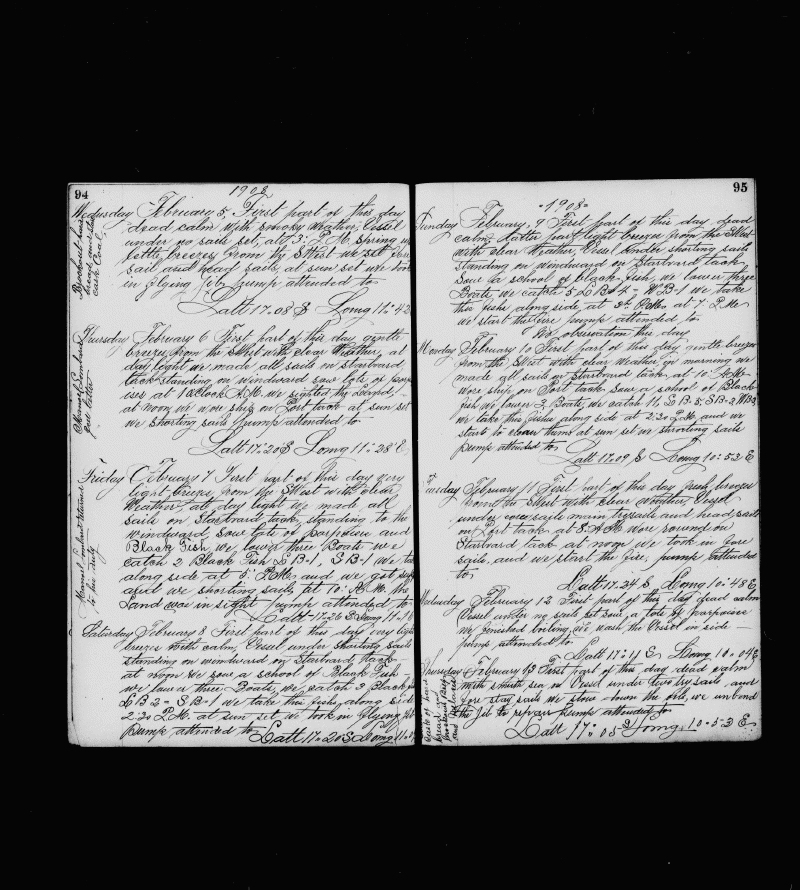 94
1908
Wednesday February 5, First part of this day
dead calm with smoky Weather, Vessel
under no sails set, at 3: P.M. spring up
little breezes from the S West we set fore
sail and head sails, at sun set we took
in flying jib pump attended to
Latt 17.08 S Long 11:42
Broached
bread
cask Coal
Thursday February 6 First part of this day gentle
breezes from the S West with clear Weather, at
day light we made all sails on starboard
tack standing on windward saw lots of porpo
ises at 1 oclock P.M. we sighted the Land,
at noon we wore ship on Port tack at sun set
we shorting sails pump attended to
Latt 17:20 S Long 11:28 E
Manuel
Friday February 7 First part of this day very
light breezes from the S West with clear
Weather, at day light we made all
sails on Starboard tack, standing to the
windward saw lots of porpoises and
Black Fish we lower three Boats we
catch 2 Black Fish L B-1, S B-1 We take
along side at 5 P.M. and we got
and we shorting sails, at 10: A.M. the
Land was in sight pump attended to
Latt 17-26 S Long 11-
Manuel returned
to his duty
Saturday February 8 First part of this day very light
breezes with calm, Vessel under shorting sails
standing on windward on Starboard tack
at noon we saw a school of Black Fish
we lower three Boats, we catch 3 Black fish
L B 2 - S B-1 we take this fish, along side
2-30 P.M. at sun set we took in flying jib
Pump attended to Latt 17-20 S Long 11-
95
-1908-
Sunday February, 9 First part of this day dead
calm, latter part light breezes from the S West
with clear Weather, Vessel under shorting sails
standing on windward on Starboard tack
Saw a school of black fish, we lower three
Boats, we catch 5 L B 4 - W B-1 we take
this fish along side at 3: P.M. at 7 P.M.
we start the fire pump attended to
No observation this day
Monday February 10 First part of this day gentle breezes
from the S West with clear Weather, at morning we
made all sails on Starboard tack, at 10: A.M.
wore ship on Port tack Saw a school of Black
fish we lower 3, Boats, we catch 11, L B-5, S B-3, W B 3
we take this fishes along side at 2-30 P.M. and we
start to clean them at sun set we shorting sails
Pump attended to
Latt 17.09 S Long 10:53 E
Tuesday February 11 First part of this day fresh breezes
from the S West with clear Weather Vessel
under sails main trysails and head sails
on Port tack at 8 A.M. wore round on
Starboard tack at noon we took in fore
sails, and we start the fire, pump attended
to,
Latt 17.24 S Long 10:48 E
Wednesday February 12 First part of this day dead calm
Vessel under no sails set Saw, a lots of porpoises
we finished boiling, we wash the Vessel in side
pump attended to,
Latt 17:11 S Long 10.04 E
Thursday February 13 First part of this day dead calm
with smooth sea on Vessel under two trysails and
fore stay sails we stove down the oil, we unbend
the jib to repair pump attended to
Latt 17: 05 S Long 10-53 E